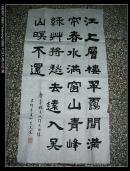 江上層樓翠靄間滿
帘春水滿窗山青楓
綠艸將愁去遠入吳
山暝不還